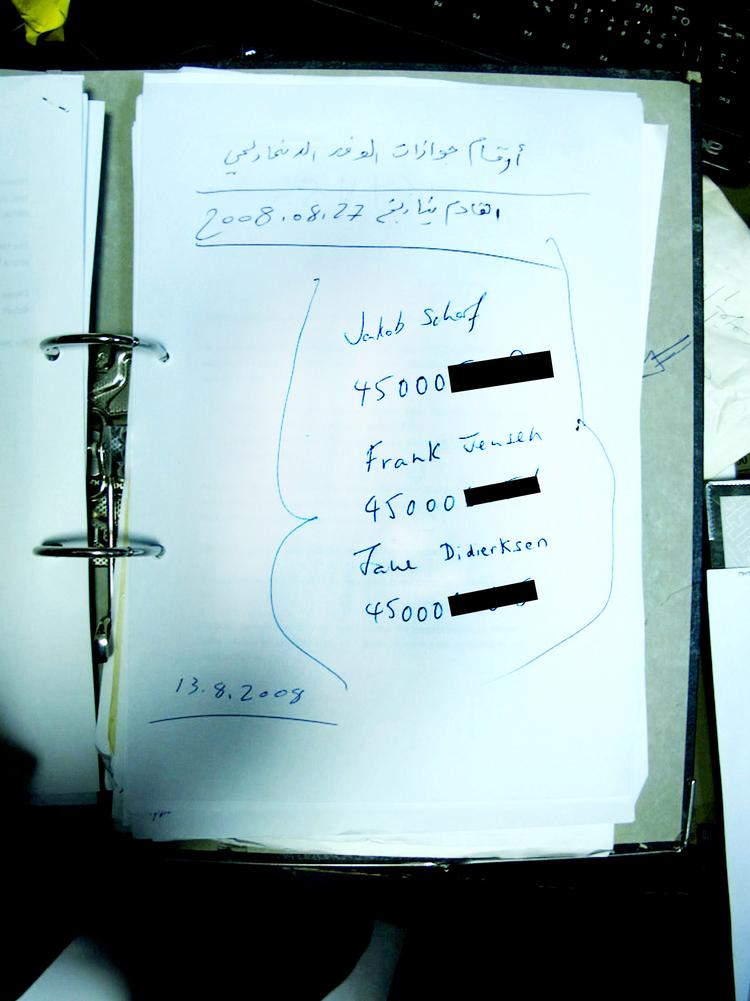 أرقام جوازات الوفد الدنماركي
القادم بتاريخ 2008.08.27
Jakob Scharf
45000
Frank Jensen
45000
Jane Didierksen
45000
13.8.2008